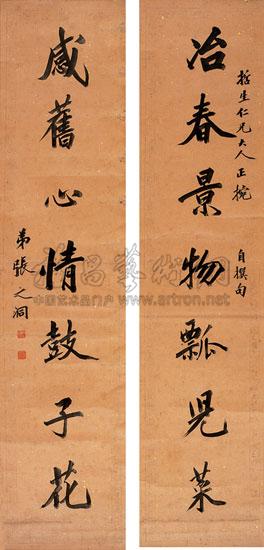 哲生仁兄大人正腕 自撰句
冶春景物瓢兒菜
感舊心情鼓子花
弟張之洞
雅昌藝術網
中国艺术品门户 www.artron.net